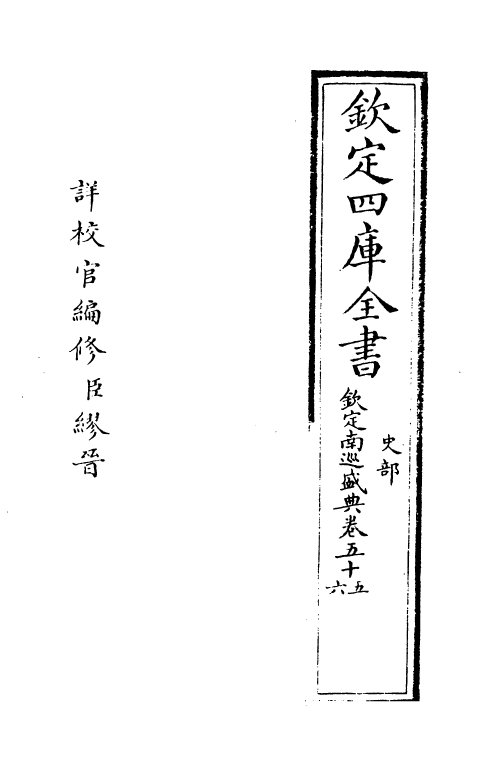 欽定四庫全書
史部
欽定南巡盛典卷五十五六
詳校官編修臣繆晉